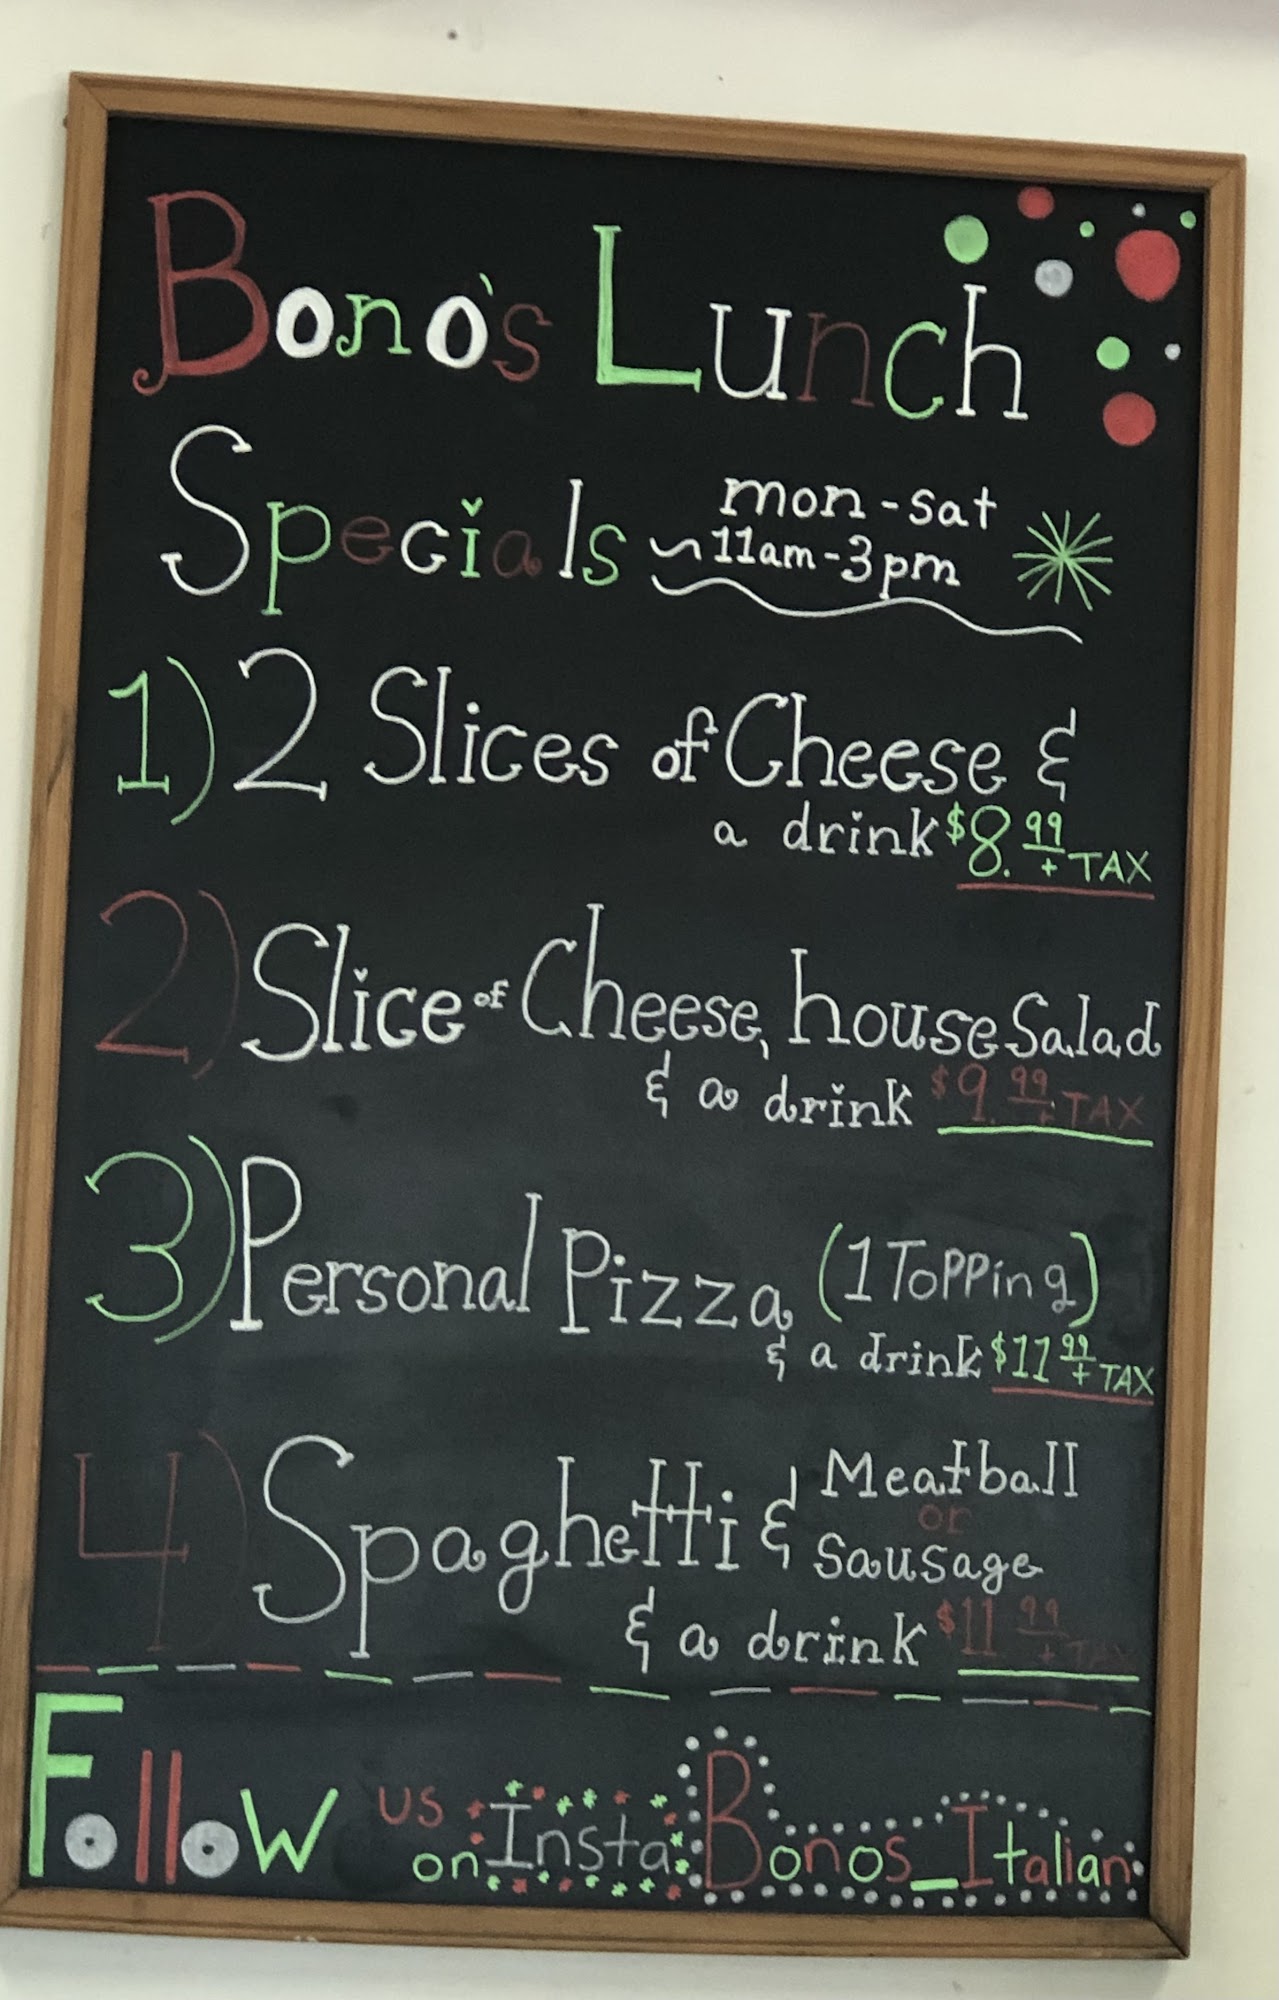 Bono's Lunch
Specials ~ mon-sat
11am-3pm
1) 2 Slices of Cheese &
a drink $8.99 + TAX
2) Slice of Cheese, house Salad
& a drink $9.99 + TAX
3) Personal Pizza (1 Topping)
& a drink $11 99 + TAX
4) Spaghetti & Meatball
or
Sausage
& a drink $11 99 + TAX
Follow us
on Insta Bonos_Italian